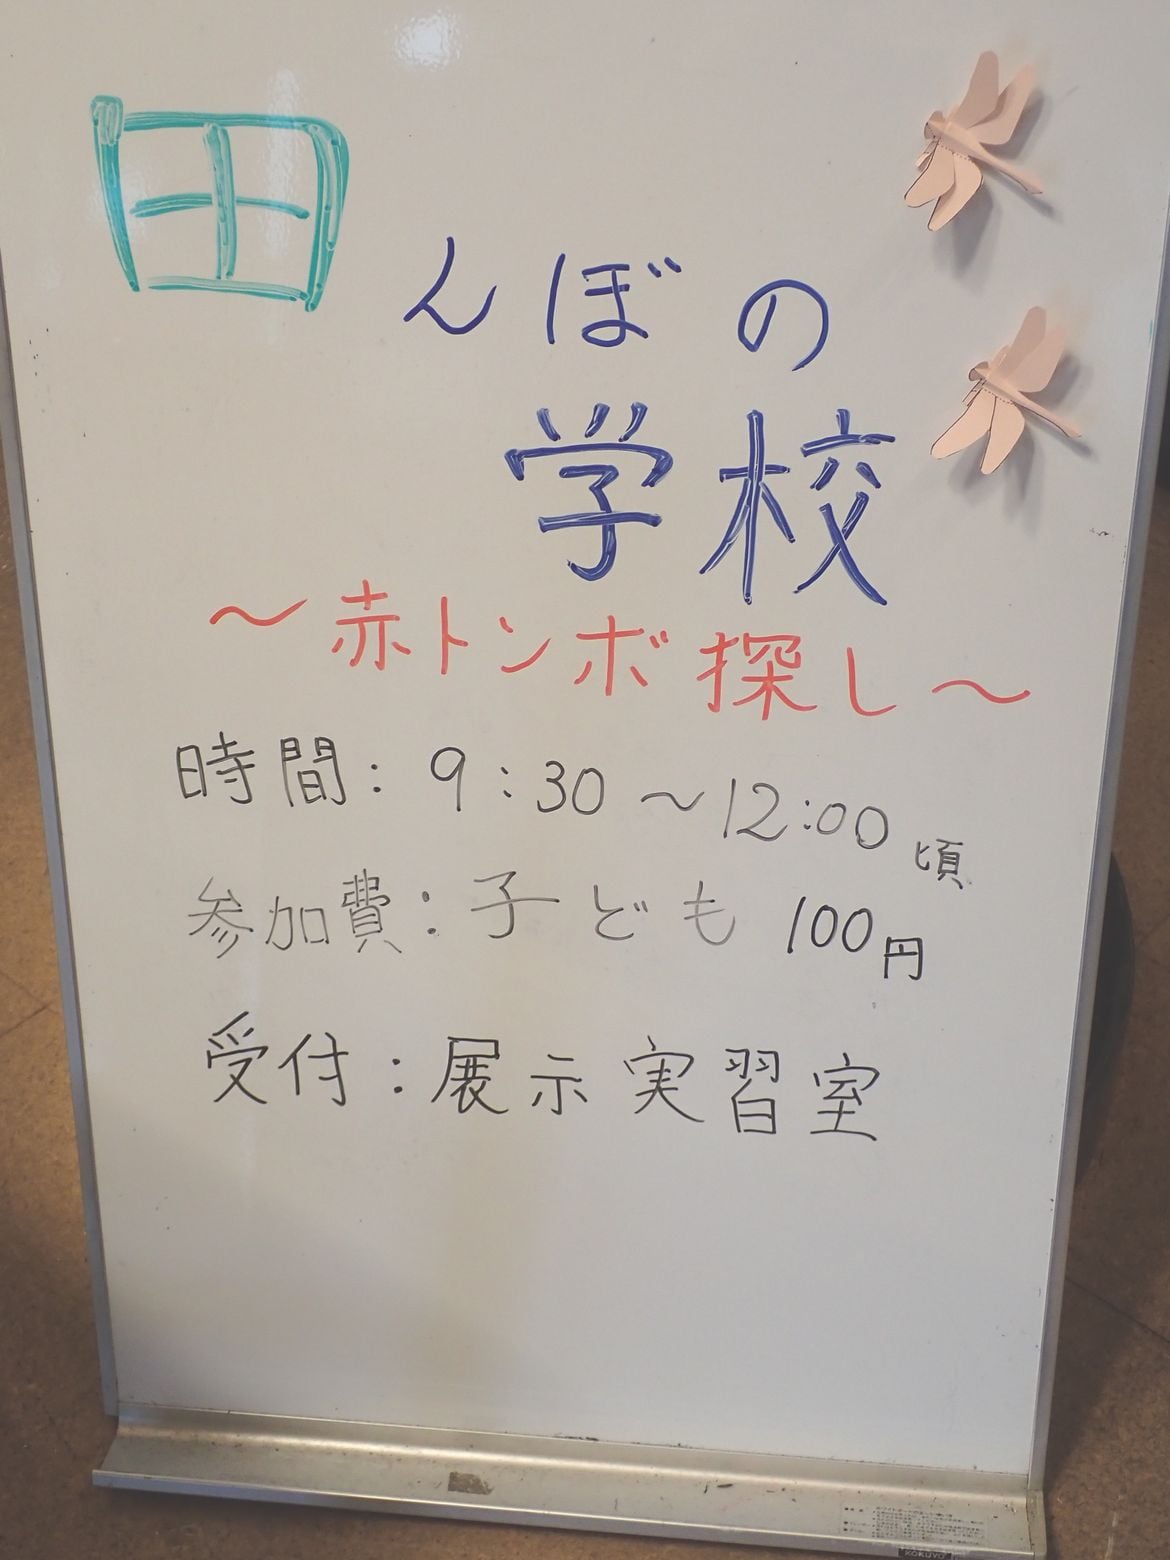 田んぼの
学校
～赤トンボ探し～
時間：9：30～12：00頃
参加費：子ども 100円
受付：展示実習室
KOKUYO